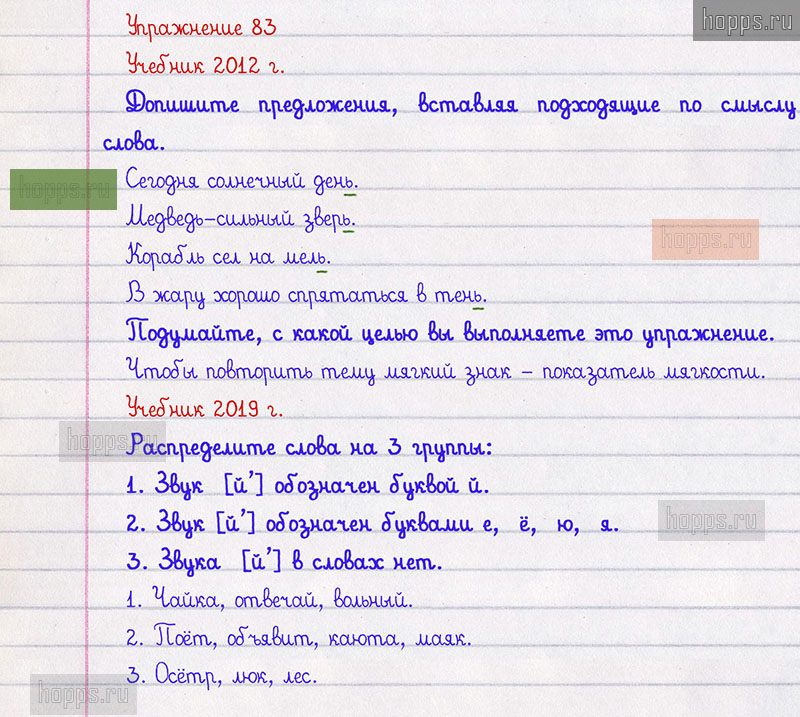 hopps.ru
Упражнение 83
Учебник 2012 г.
Допишите предложения, вставляя подходящие по смыслу
слова.
Сегодня солнечный день.
hopps.ru
Медведь-сильный зверь.
hopps.ru
Корабль сел на мель.
В жару хорошо спрятаться в тень.
Подумайте, с какой целью вы выполняете это упражнение.
Чтобы повторить тему мягкий знак – показатель мягкости.
Учебник 2019 г.
hopps.ru
Распределите слова на 3 группы:
1. Звук [й'] обозначен буквой й.
2. Звук [й'] обозначен буквами е, ё, ю, я.
hopps.ru
3. Звука [й'] в словах нет.
1. Чайка, отвечай, вольный.
2. Поёт, объявит, каюта, маяк.
3. Осётр, люк, лес.
hopps.ru